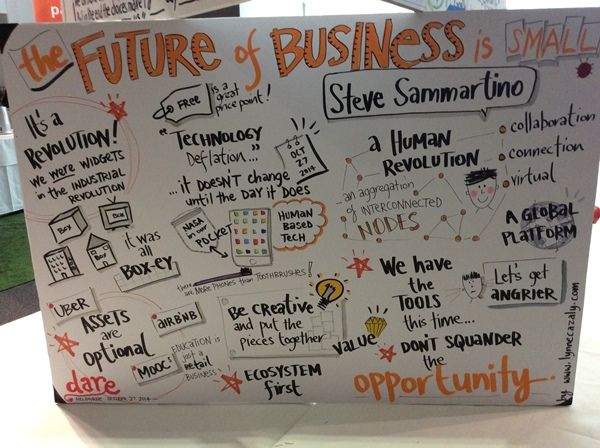 the FUTURE of BUSINESS is SMALL
Steve Sammartino
It's a
REVOLUTION!
WE WERE WIDGETS
in the INDUSTRIAL
REVOLUTION
BOX
BOX
BOX
it was all
BOX-EY
FREE
is a great
price point!
"TECHNOLOGY
Deflation..."
OCT
27
2014
...it DOESN'T CHANGE
until the DAY it DOES
NASA
in our
POCKET
HUMAN
BASED
TECH
there are MORE PHONES than TOOTHBRUSHES!
a HUMAN
REVOLUTION
collaboration
connection
virtual
an aggregation
of INTERCONNECTED
NODES
A GLOBAL
PLATFORM
UBER
ASSETS
are
OPTIONAL
AIRBNB
MOOCs
EDUCATION is
just a
retail
BUSINESS
Be CREATIVE
and put the
pieces together
ECOSYSTEM
first
VALUE
We HAVE
the
TOOLS
this time...
Let's get
ANGRIER
DON'T SQUANDER
the
opportunity
dare
MELBOURNE OCTOBER 27 2014
by www.lynnecazaly.com